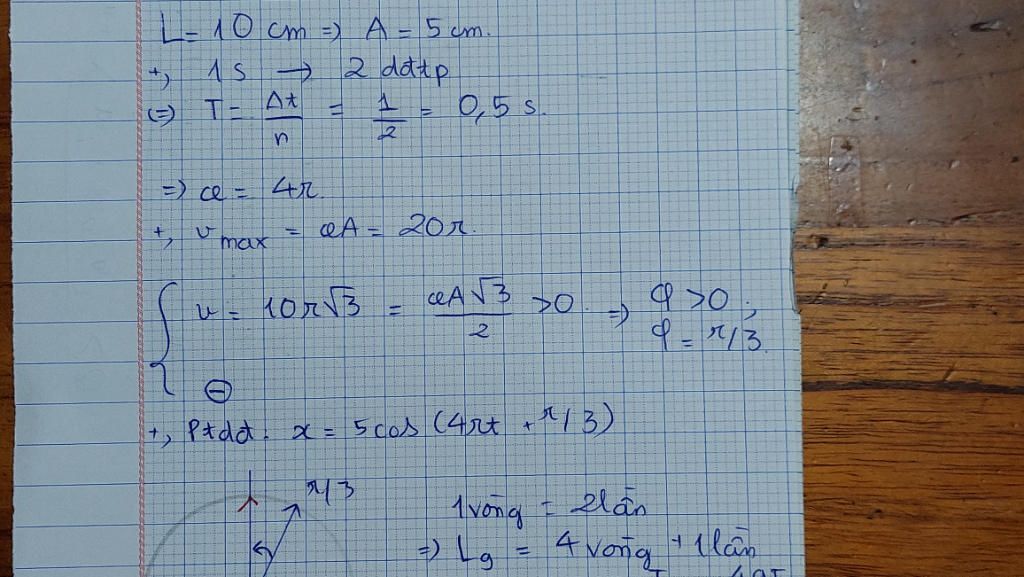 L = 10 cm => A = 5 cm.
+, 1 s → 2 dđtp
(=) T = Δt/n = 1/2 = 0,5 s.
=) ω = 4π.
+, v max = ωA = 20π.
v = 10π√3 = ωA√3/2 > 0 => φ > 0 ;
φ = π/3.
⊖
+, Ptdđ: x = 5 cos (4πt + π/3)
π/3
1 vòng = 2 lần
=) L9 = 4 vòng + 1 lần